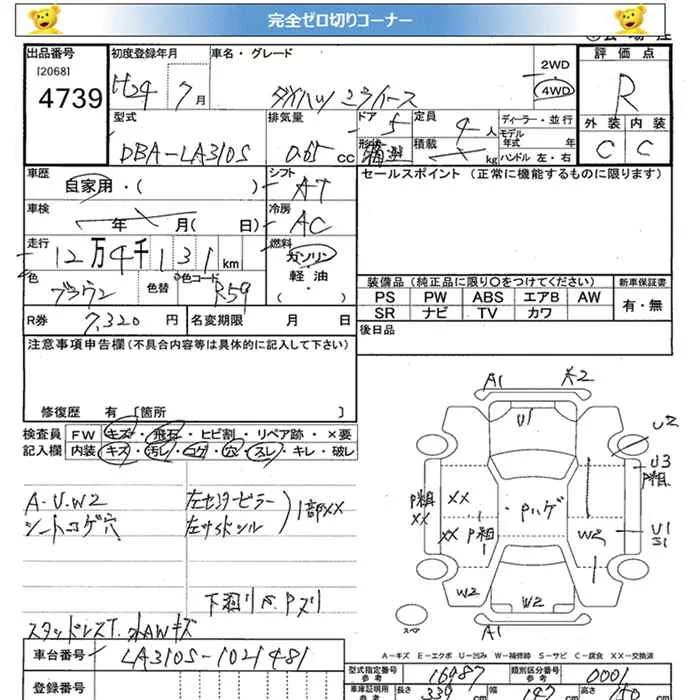 完全ゼロ切りコーナー
出品番号
[2068]
4739
初度登録年月
H24 7月
車名・グレード
ダイハツ ミライース
2WD
4WD
評価点
R
外装 内装
C C
型式
DBA-LA310S
排気量
0.65 CC
ドア
5
定員
4人
形状
積載
kg
ディーラー・並行
モデル年式 年
ハンドル 左・右
車歴
自家用・( )
シフト
AT
車検
年 月(日)
冷房
AC
走行
12万4千131km
燃料
ガソリン
軽油
( )
色
ブラウン
色替
色コード
R59
R券
7,320 円
名変期限 月 日
セールスポイント (正常に機能するものに限ります)
装備品 (純正品に限り○をつけてください)
新車保証書
PS PW ABS エアB AW
SR ナビ TV カワ
有・無
後日品
注意事項申告欄(不具合内容等は具体的に記入して下さい)
修復歴 有 [箇所 ]
検査員
記入欄
FW キズ・飛石・ヒビ割・リペア跡・×要
内装 キズ・汚レ・コゲ・穴・スレ・キレ・破レ
A・U・W2
シートコゲ穴
左センターピラー
左サイドシル
1部XX
下廻りサ、Pズリ
スタッドレスT.社外AWキズ
A1
U1
U2
U3
P粗
XX
P粗
XX
XX
XX
P粗
・Pハゲ
W2
U1
S1
W2
W2
A1
スペア
A-キズ E-エクボ U-凹み W-補修跡 S-サビ C-腐食 XX-交換済
車台番号
LA310S-1021481
登録番号
型式指定番号
参考
16987
類別区分番号
参考
0001
車庫証明用
参考
長さ
339
cm
幅
147
cm
高さ
150
cm